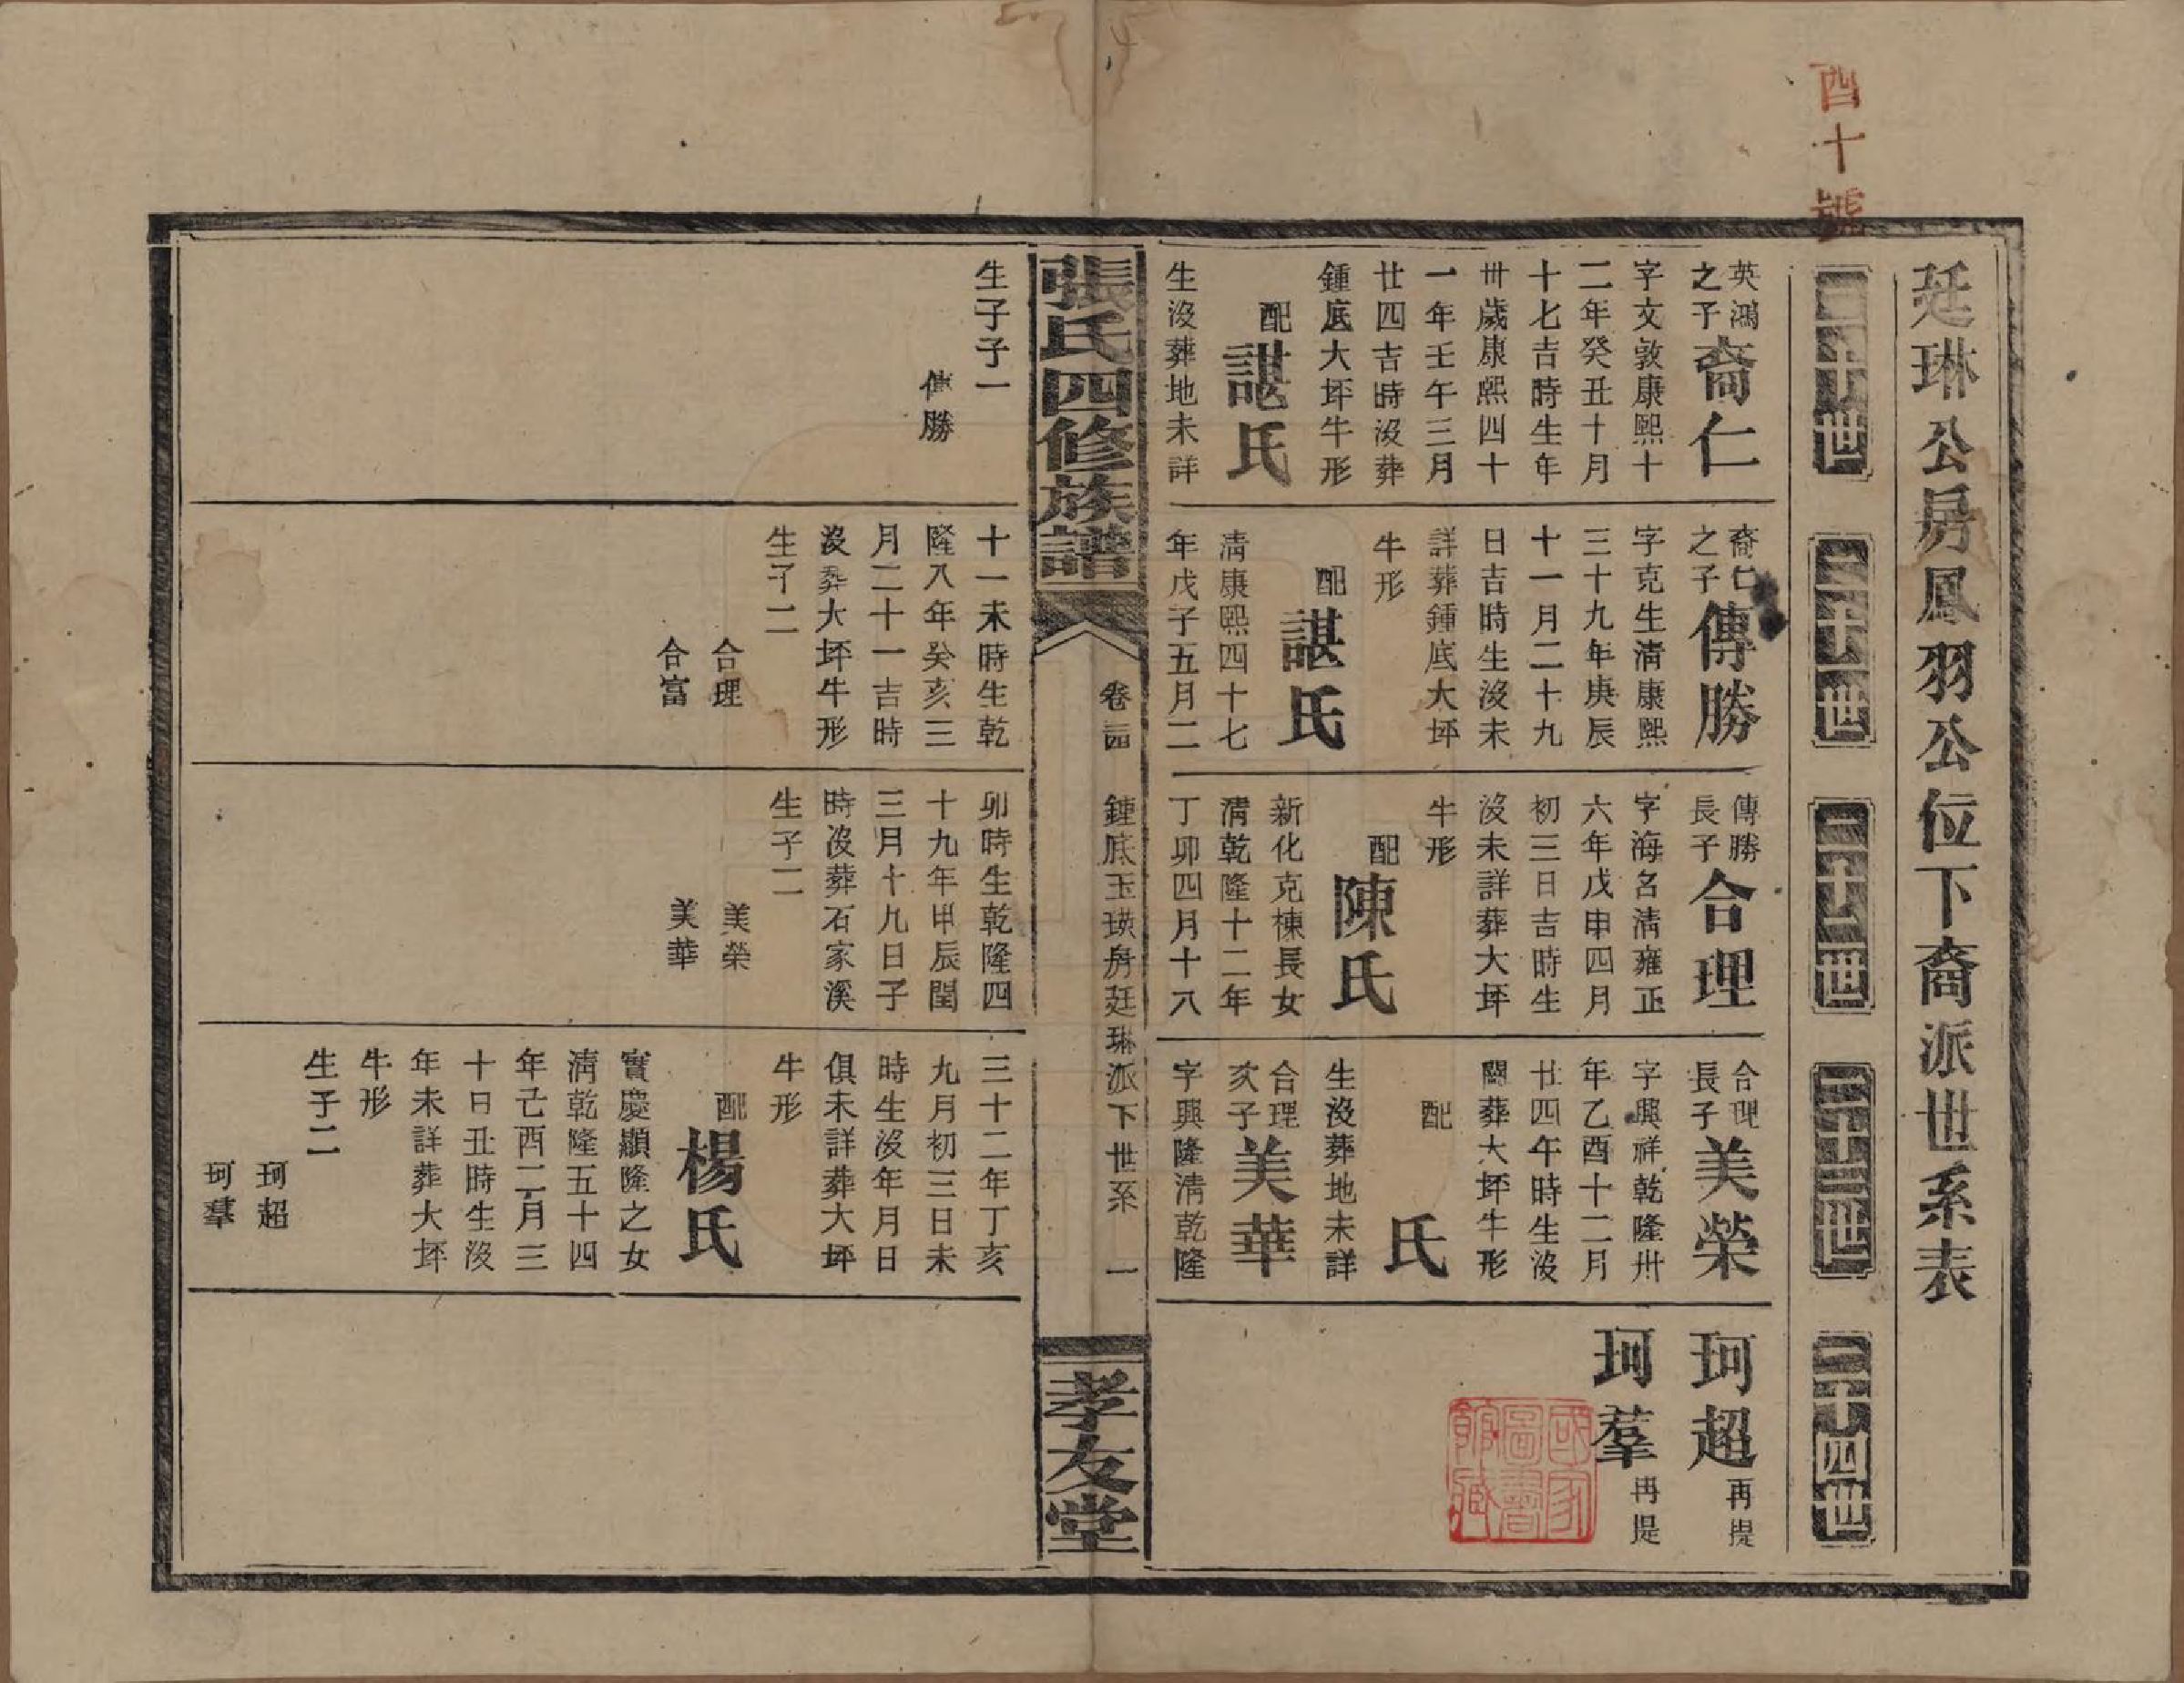 酉十號
廷琳公房鳳羽公位下裔派世系表
二十世
英鴻
之子
裔仁
字文敦康熙十
二年癸丑十月
十七吉時生年
卅歲康熙四十
一年壬午三月
廿四吉時沒葬
鍾底大坪牛形
配
諶氏
生沒葬地未詳
生子子一
傳勝
二十一世
裔仁
之子
傳勝
字克生清康熙
三十九年庚辰
十一月二十九
日吉時生沒未
詳葬鍾底大坪
牛形
配
諶氏
清康熙四十七
年戊子五月二
十一未時生乾
隆八年癸亥三
月二十一吉時
沒葬大坪牛形
生子二
合理
合富
二十二世
傳勝
長子
合理
字海名清雍正
六年戊申四月
初三日吉時生
沒未詳葬大坪
牛形
配
陳氏
新化克棟長女
清乾隆十二年
丁卯四月十八
卯時生乾隆四
十九年甲辰閏
三月十九日子
時沒葬石家溪
生子二
美榮
美華
二十三世
合理
長子
美榮
字興祥乾隆卅
年乙酉十二月
廿四午時生沒
闕葬大坪牛形
配
氏
生沒葬地未詳
合理
次子
美華
字興隆清乾隆
三十二年丁亥
九月初三日未
時生沒年月日
俱未詳葬大坪
牛形
配
楊氏
寶慶顯隆之女
清乾隆五十四
年己酉二月三
十日丑時生沒
年未詳葬大坪
牛形
生子二
珂超
珂羣
二十四世
珂超
再提
珂羣
再提
國家圖書館藏
張氏四修族譜
卷三四
鍾底玉瑛房廷琳派下世系
一
孝友堂